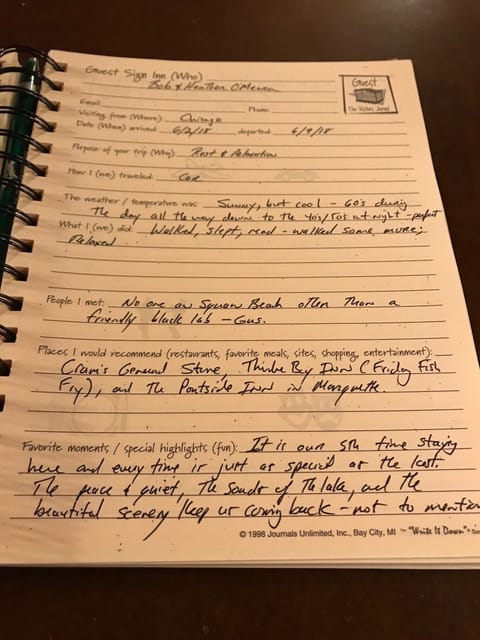 Guest Sign Inn (Who)
Bob & Heather O'Mearra
Guest
The Visitors Journal
Email Phone:
Visiting from (Where) Chicago
Date (When) arrived 6/2/18 departed 6/9/18
Purpose of your trip (Why) Rest & Relaxation
How I (we) traveled: Car
The weather / temperature was: Sunny, but cool - 60's during
the day all the way down to the 40's/50's at night - perfect
What I (we) did: Walked, slept, read - walked some more;
Relaxed
People I met: No one on Squaw Beach other than a
friendly black lab - Gus.
Places I would recommend (restaurants, favorite meals, sites, shopping, entertainment):
Cram's General Store, Thunder Bay Inn (Friday Fish
Fry), and The Portside Inn in Marquette.
Favorite moments / special highlights (fun): It is our 5th time staying
here and every time is just as special as the last.
The peace & quiet, The Sounds of The lake, and the
beautiful scenery keep us coming back - not to mention
© 1998 Journals Unlimited, Inc., Bay City, MI "Write It Down"